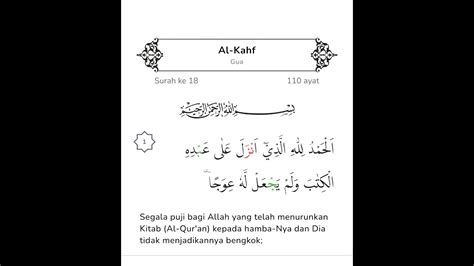 Al-Kahf
Gua
Surah ke 18 110 ayat
بِسْمِ اللّٰهِ الرَّحْمٰنِ الرَّحِيْمِ
اَلْحَمْدُ لِلّٰهِ الَّذِيْٓ اَنْزَلَ عَلٰى عَبْدِهِ
1
الْكِتٰبَ وَلَمْ يَجْعَلْ لَّهٗ عِوَجًاۜ
Segala puji bagi Allah yang telah menurunkan
Kitab (Al-Qur'an) kepada hamba-Nya dan Dia
tidak menjadikannya bengkok;